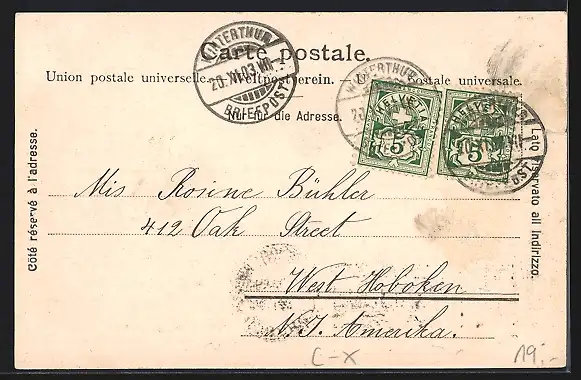 Carte postale.
Union postale universelle. — Weltpostverein. — Unione postale universale.
Nur für die Adresse.
WINTERTHUR
20.XII.
BRIEFPOST
WINTERTHUR
HELVETIA
5
HELVETIA
5
BRIEFPOST
Côté réservé à l'adresse.
Lato riservato all indirizzo.
Mis Rosine Bühler
412 Oak Street
West Hoboken
N.J. Amerika.
C-X
19.-